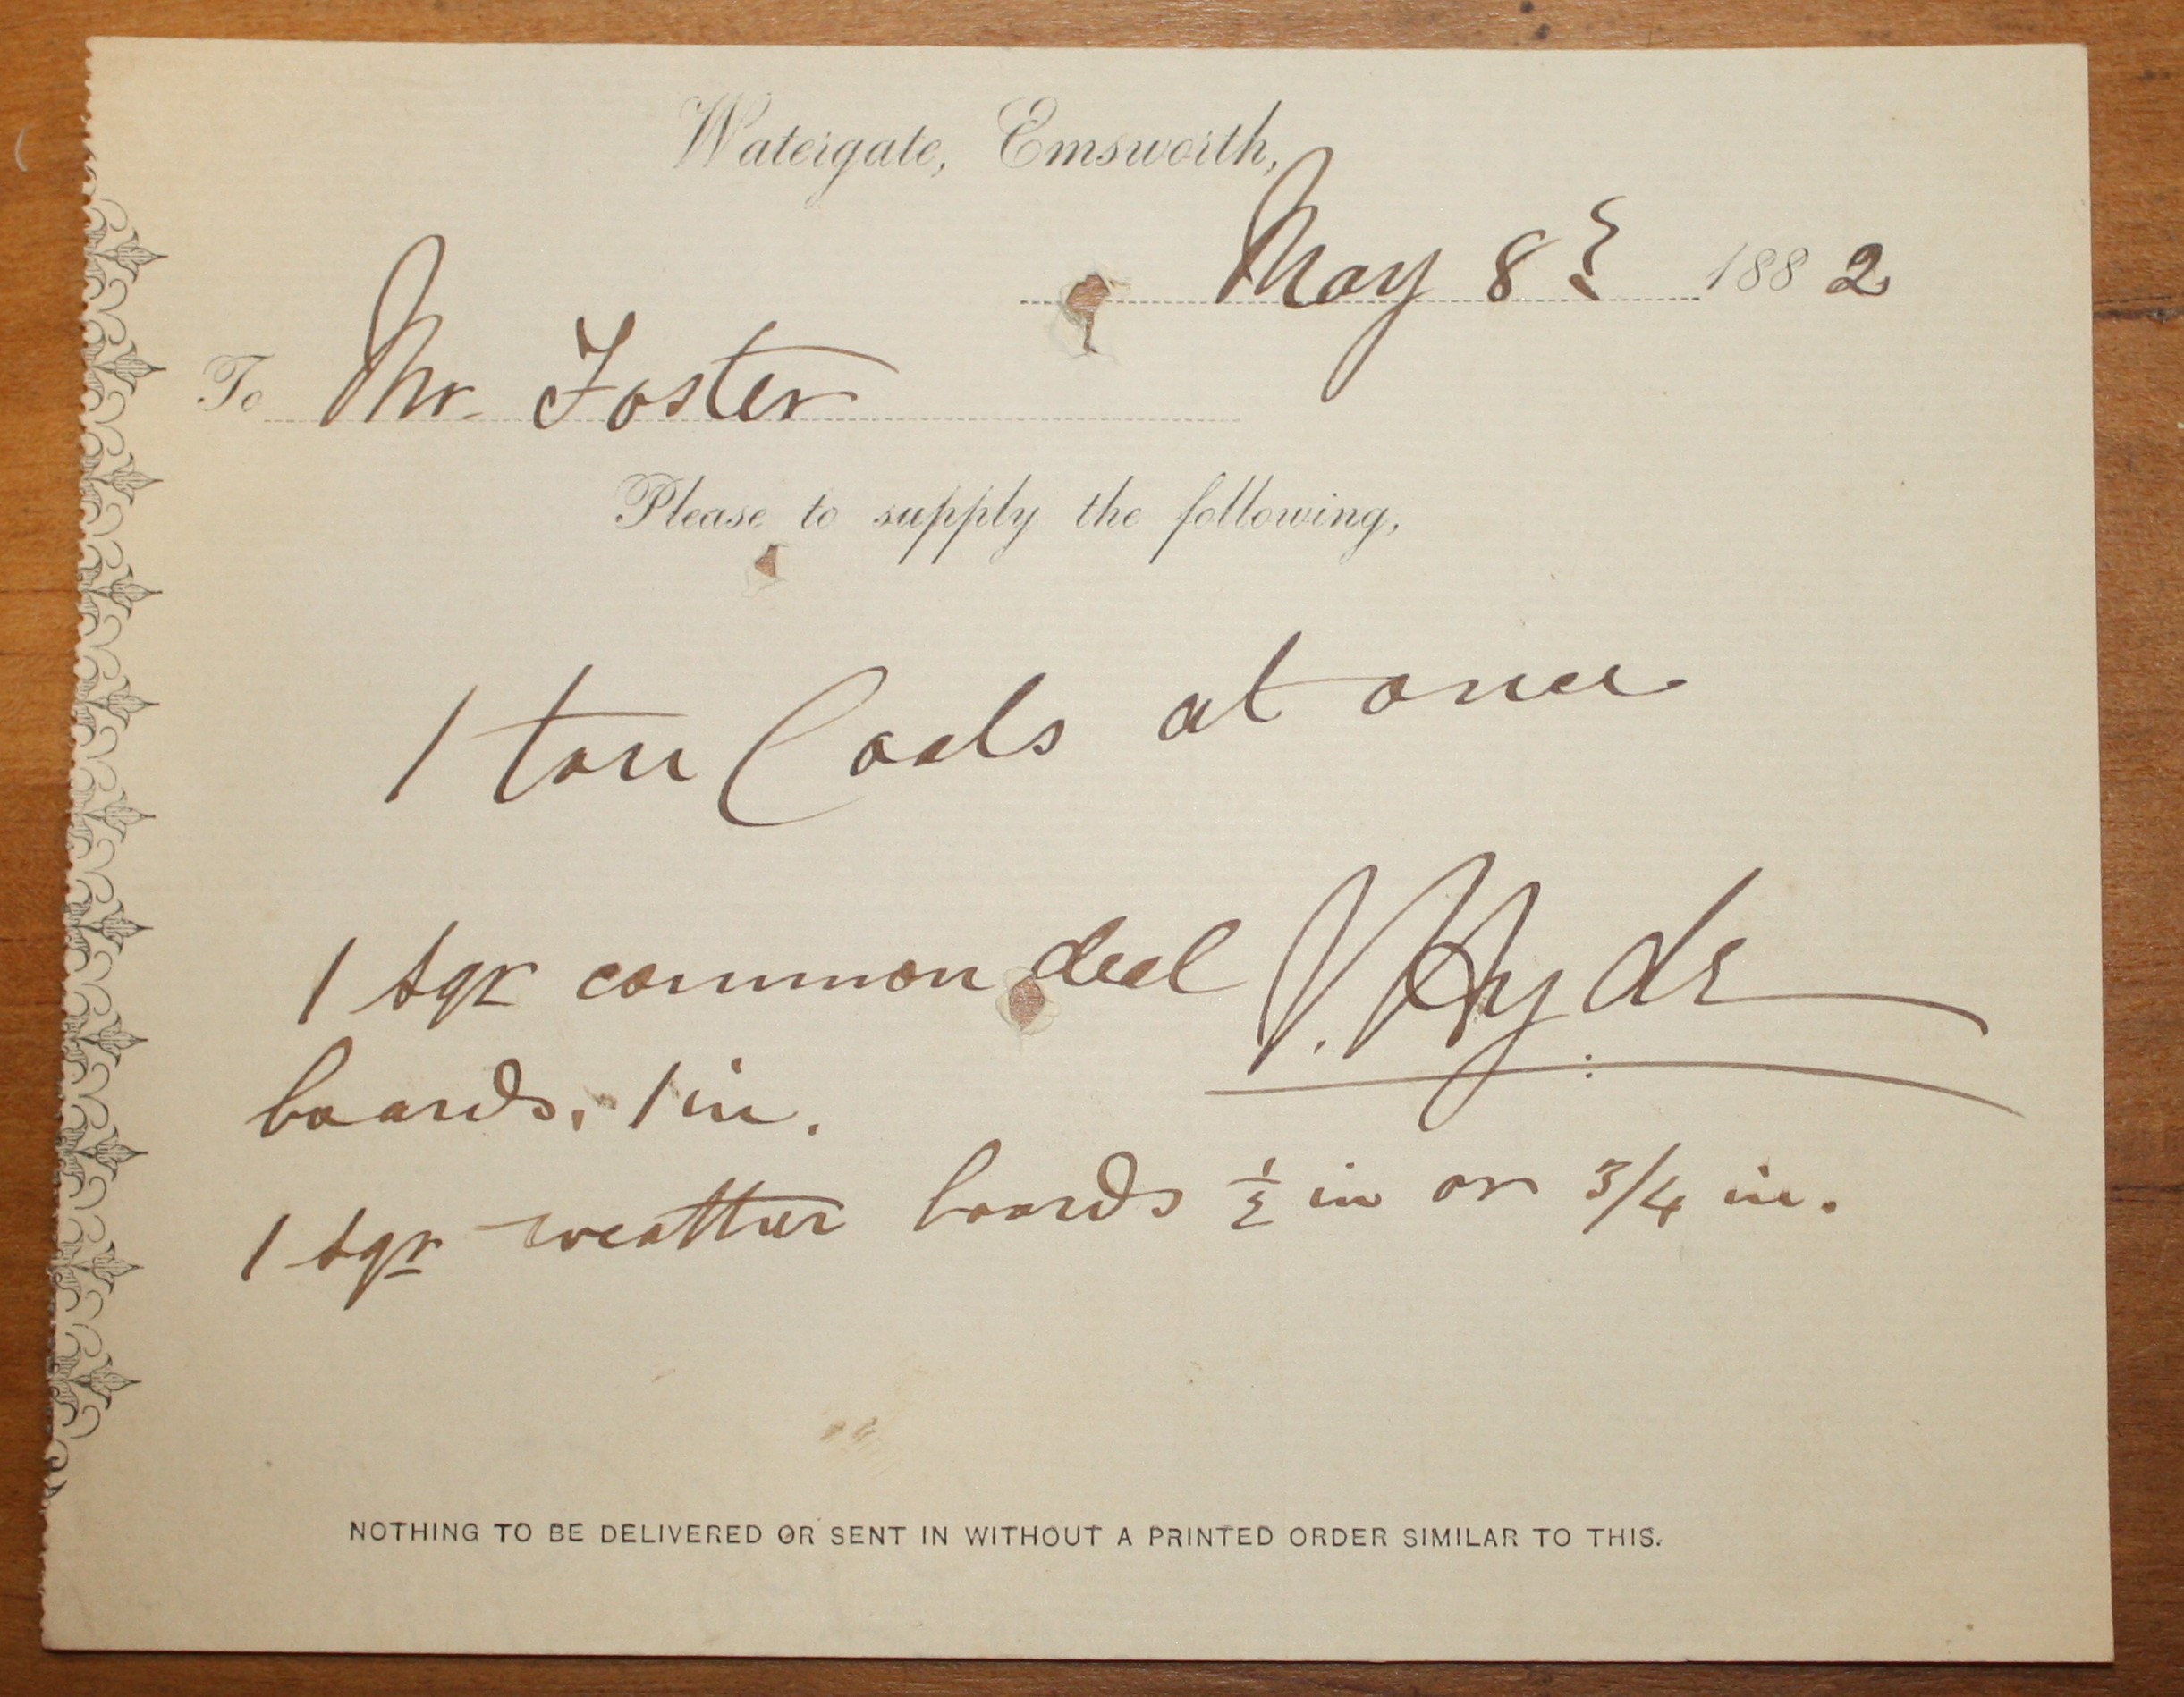 Watergate, Emsworth,
May 8 1882
To Mr. Foster
Please to supply the following,
1 ton Coals at once
1 sqr common deal
J. Hyde
boards. 1 in.
1 sqr weather boards ½ in or 3/4 in.
NOTHING TO BE DELIVERED OR SENT IN WITHOUT A PRINTED ORDER SIMILAR TO THIS.